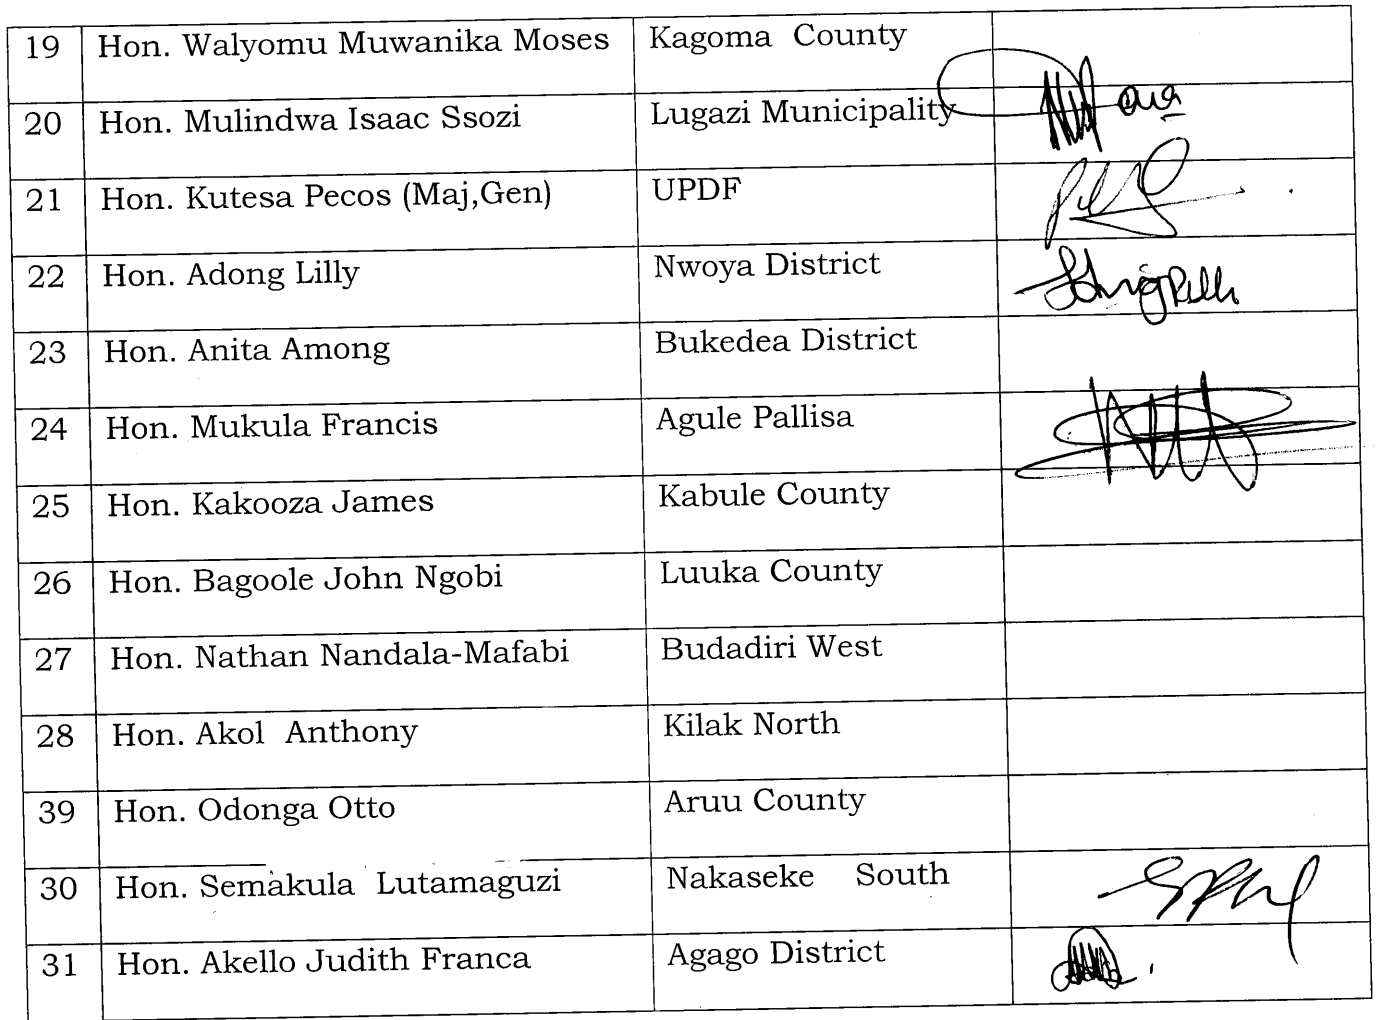 19 Hon. Walyomu Muwanika Moses Kagoma County
20 Hon. Mulindwa Isaac Ssozi Lugazi Municipality
21 Hon. Kutesa Pecos (Maj,Gen) UPDF
22 Hon. Adong Lilly Nwoya District
23 Hon. Anita Among Bukedea District
24 Hon. Mukula Francis Agule Pallisa
25 Hon. Kakooza James Kabule County
26 Hon. Bagoole John Ngobi Luuka County
27 Hon. Nathan Nandala-Mafabi Budadiri West
28 Hon. Akol Anthony Kilak North
39 Hon. Odonga Otto Aruu County
30 Hon. Semakula Lutamaguzi Nakaseke South
31 Hon. Akello Judith Franca Agago District